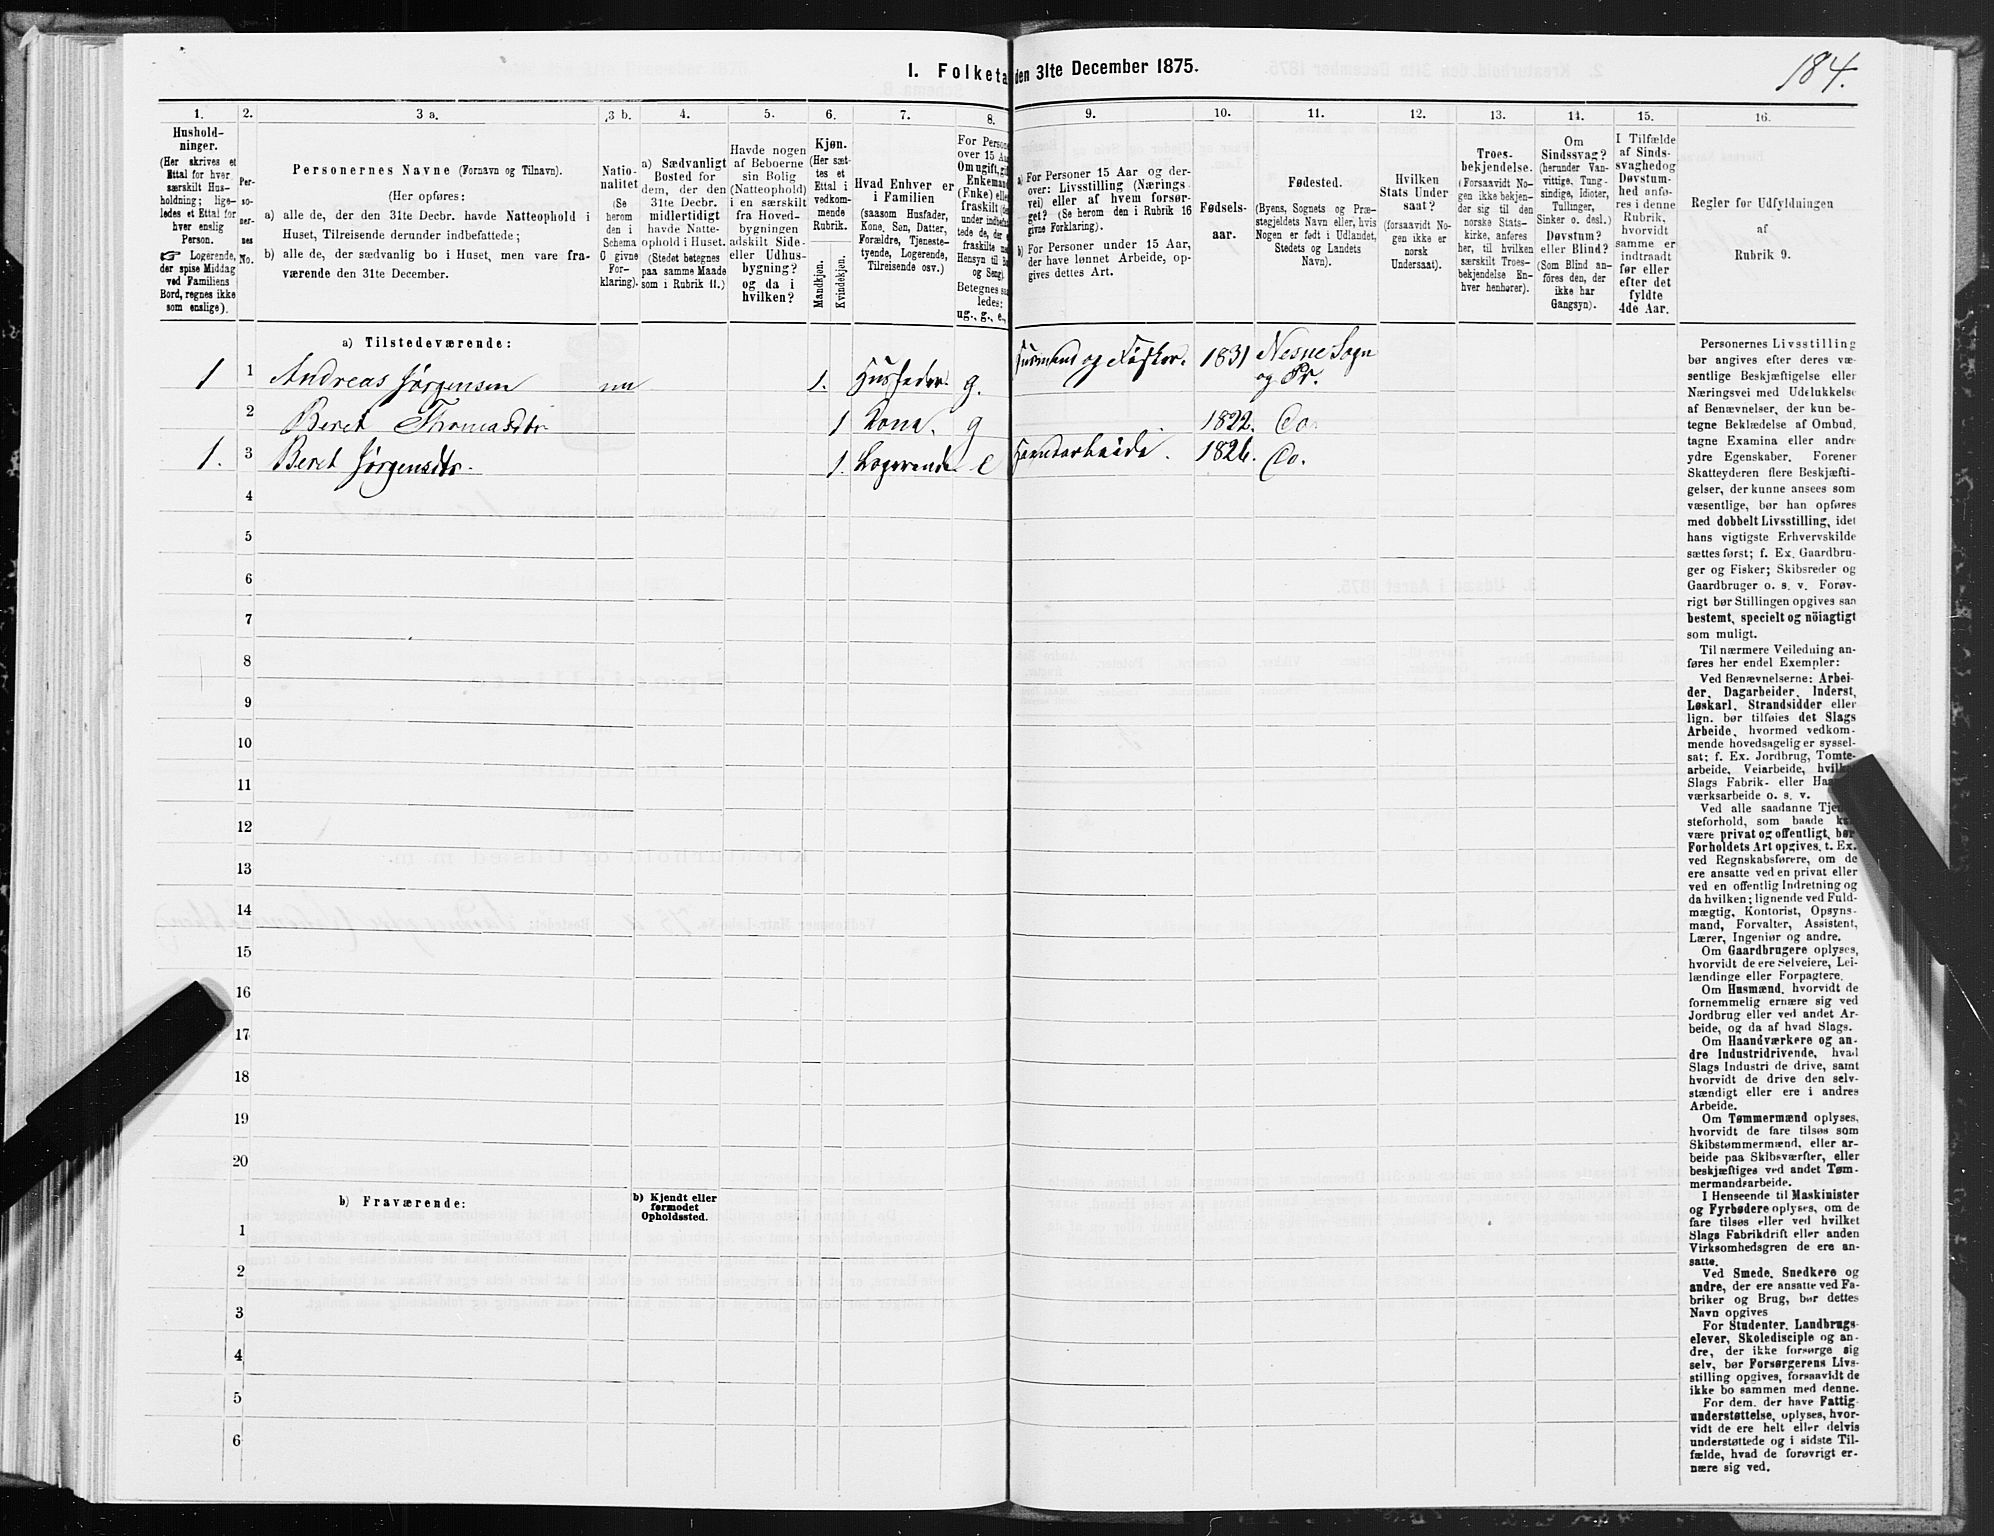 184.
1. Folketa
den 31te December 1875.
1. 2. 3 a. 3 b. 4. 5. 6. 7. 8. 9. 10. 11. 12. 13. 14. 15. 16.
Hushold-
ninger.
(Her skrives et
Ettal for hver
særskilt Hus-
holdning; lige-
ledes et Ettal for
hver enslig
Person.
☞ Logerende,
der spise Middag
ved Familiens
Bord, regnes ikke
som enslige).
Per-
so-
ner-
nes
No.
Personernes Navne (Fornavn og Tilnavn).
(Her opføres:
a) alle de, der den 31te Decbr. havde Natteophold i
Huset, Tilreisende derunder indbefattede;
b) alle de, der sædvanlig bo i Huset, men vare fra-
værende den 31te December.
Natio-
nalitet
(Se
herom
den i
Schema
C givne
For-
klaring).
a) Sædvanligt
Bosted for
dem, der den
31te Decbr.
midlertidigt
havde Natte-
ophold i Huset.
(Stedet betegnes
paa samme Maade
som i Rubrik 11.)
Havde nogen
af Beboerne
sin Bolig
(Natteophold)
i en særskilt
fra Hoved-
bygningen
adskilt Side-
eller Udhus-
bygning?
og da i
hvilken?
Kjøn.
(Her sæt-
tes et
Ettal i
vedkom-
mende
Rubrik.
Mandkjøn.
Kvindekjøn.
Hvad Enhver er
i Familien
(saasom Husfader,
Kone, Søn, Datter,
Forældre, Tjeneste-
tyende, Logerende,
Tilreisende osv.)
For Persone
over 15 Aa
Om ugift, gif
Enkemand
(Enke) elle
fraskilt
under indbefat-
tede de, de
fraskilte
Hensyn til Bo
og Seng).
Betegnes saa-
ledes:
ug., g., e.,
a) For Personer 15 Aar og der-
over: Livsstilling (Nærings
vei) eller af hvem forsør-
get? (Se herom den i Rubrik 16
givne Forklaring).
b) For Personer under 15 Aar,
der have lønnet Arbeide, op-
gives dettes Art.
Fødsels-
aar.
Fødested.
(Byens, Sognets og Præ-
stegjeldets Navn eller, hvis
Nogen er født i Udlandet,
Stedets og Landets
Navn).
Hvilken
Stats Under
saat?
(forsaavidt No-
gen ikke er
norsk
Undersaat).
Troes-
bekjendelse.
(Forsaavidt No-
gen ikke bekjen-
der sig til den
norske Stats-
kirke, anføres
her, til hvilken
særskilt Troes-
bekjendelse En-
hver henhører).
Om
Sindssvag?
(herunder Van-
vittige, Tung-
sindige, Idioter,
Tullinger,
Sinker o. desl.)
Døvstum?
eller Blind?
(Som Blind an-
føres den, der
ikke har
Gangsyn).
I Tilfælde
af Sinds-
svaghedog
Døvstum-
hed anfø-
res i denne
Rubrik,
hvorvidt
samme er
indtraadt
før eller
efter det
fyldte
4de Aar.
Regler for Udfyldningen
af
Rubrik 9.
a) Tilstedeværende:
1 1 Andreas Jørgensen nu 1. Husfader. g. Husmand og Fisker. 1831 Nesne Sogn
og Pr.
2 Beret Thomasdtr 1 Kona. g 1822. Do.
1. 3 Beret Jørgensdtr. 1. Logerende e Haandarbeide. 1826. Do.
4
5
6
7
8
9
10
11
12
13
14
15
16
17
18
19
20
b) Fraværende:
b) Kjendt eller
formodet
Opholdssted.
1
2
3
4
5
6
Personernes Livsstilling
bør angives efter deres væ-
sentlige Beskjæftigelse eller
Næringsvei med Udelukkelse
af Benævnelser, der kun be-
tegne Beklædelse af Ombud,
tagne Examina eller andre
ydre Egenskaber. Forener
Skatteyderen flere Beskjæfti-
gelser, der kunne ansees som
væsentlige, bør han opføres
med dobbelt Livsstilling, idet
hans vigtigste Erhvervskilde
sættes først; f. Ex. Gaardbru-
ger og Fisker; Skibsreder og
Gaardbruger o. s. v. Forøv-
rigt bør Stillingen opgives saa
bestemt, specielt og nöiagtigt
som muligt.
Til nærmere Veiledning an-
føres her endel Exempler:
Ved Benævnelserne: Arbei-
der, Dagarbeider, Inderst,
Løskarl, Strandsidder eller
lign. bør tilføies det Slags
Arbeide, hvormed vedkom-
mende hovedsagelig er syssel-
sat; f. Ex. Jordbrug, Tomte-
arbeide, Veiarbeide, hvilke
Slags Fabrik- eller Haa
værksarbeide o. s. v.
Ved alle saadanne Tje
steforhold, som baade k
være privat og offentligt, bør
Forholdets Art opgives, t. Ex.
ved Regnskabsførere, om de
ere ansatte ved en privat eller
ved en offentlig Indretning og
da hvilken; lignende ved Fuld-
mægtig, Kontorist, Opsyns-
mand, Forvalter, Assistent,
Lærer, Ingeniør og andre.
Om Gaardbrugere oplyses,
hvorvidt de ere Selveiere, Lei-
lændinge eller Forpagtere.
Om Husmænd, hvorvidt de
fornemmelig ernære sig ved
Jordbrug eller ved andet Ar-
beide, og da af hvad Slags.
Om Haandværkere og an-
dre Industridrivende, hvad
Slags Industri de drive, samt
hvorvidt de drive den selv-
stændigt eller ere i andres
Arbeide.
Om Tømmermænd oplyses,
hvorvidt de fare tilsøs som
Skibstømmermænd, eller ar-
beide paa Skibsværfter, eller
beskjæftiges ved andet Tøm-
mermandsarbeide.
I Henseende til Maskinister
og Fyrbødere oplyses, om de
fare tilsøs eller ved hvilket
Slags Fabrikdrift eller anden
Virksomhedsgren de ere an-
satte.
Ved Smede, Snedkere og
andre, der ere ansatte ved Fa-
briker og Brug, bør dettes
Navn opgives
For Studenter, Landbrugs-
elever, Skoledisciple og an-
dre, der ikke forsørge sig
selv, bør Forsørgerens Livs-
stilling opgives, forsaavidt de
ikke bo sammen med denne.
For dem, der have Fattig-
understøttelse, oplyses, hvor-
vidt de ere helt eller delvis
understøttede og i sidste Til-
fælde, hvad de forøvrigt er-
nære sig ved.